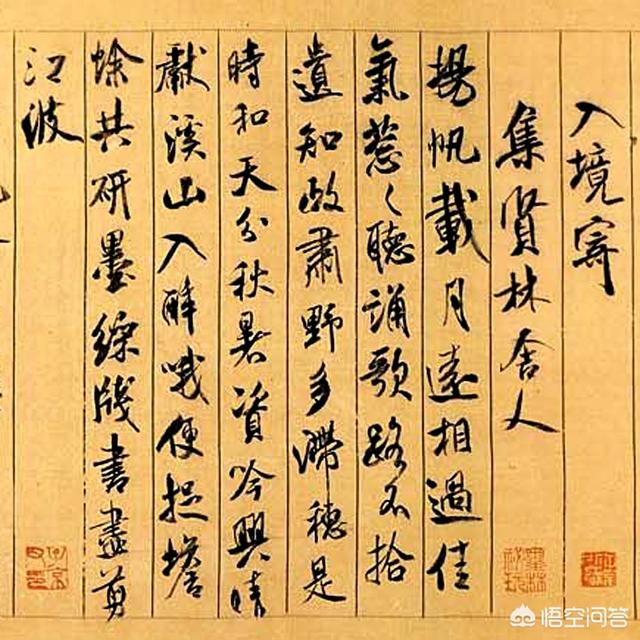 入境寄
集賢林舍人
揚帆載月遠相過佳
氣葱〻聽誦歌路不拾
遺知政肅野多滯穗是
時和天分秋暑資吟興晴
獻溪山入醉哦便捉蟾
蜍共研墨綵牋書盡剪
江波
悟空问答